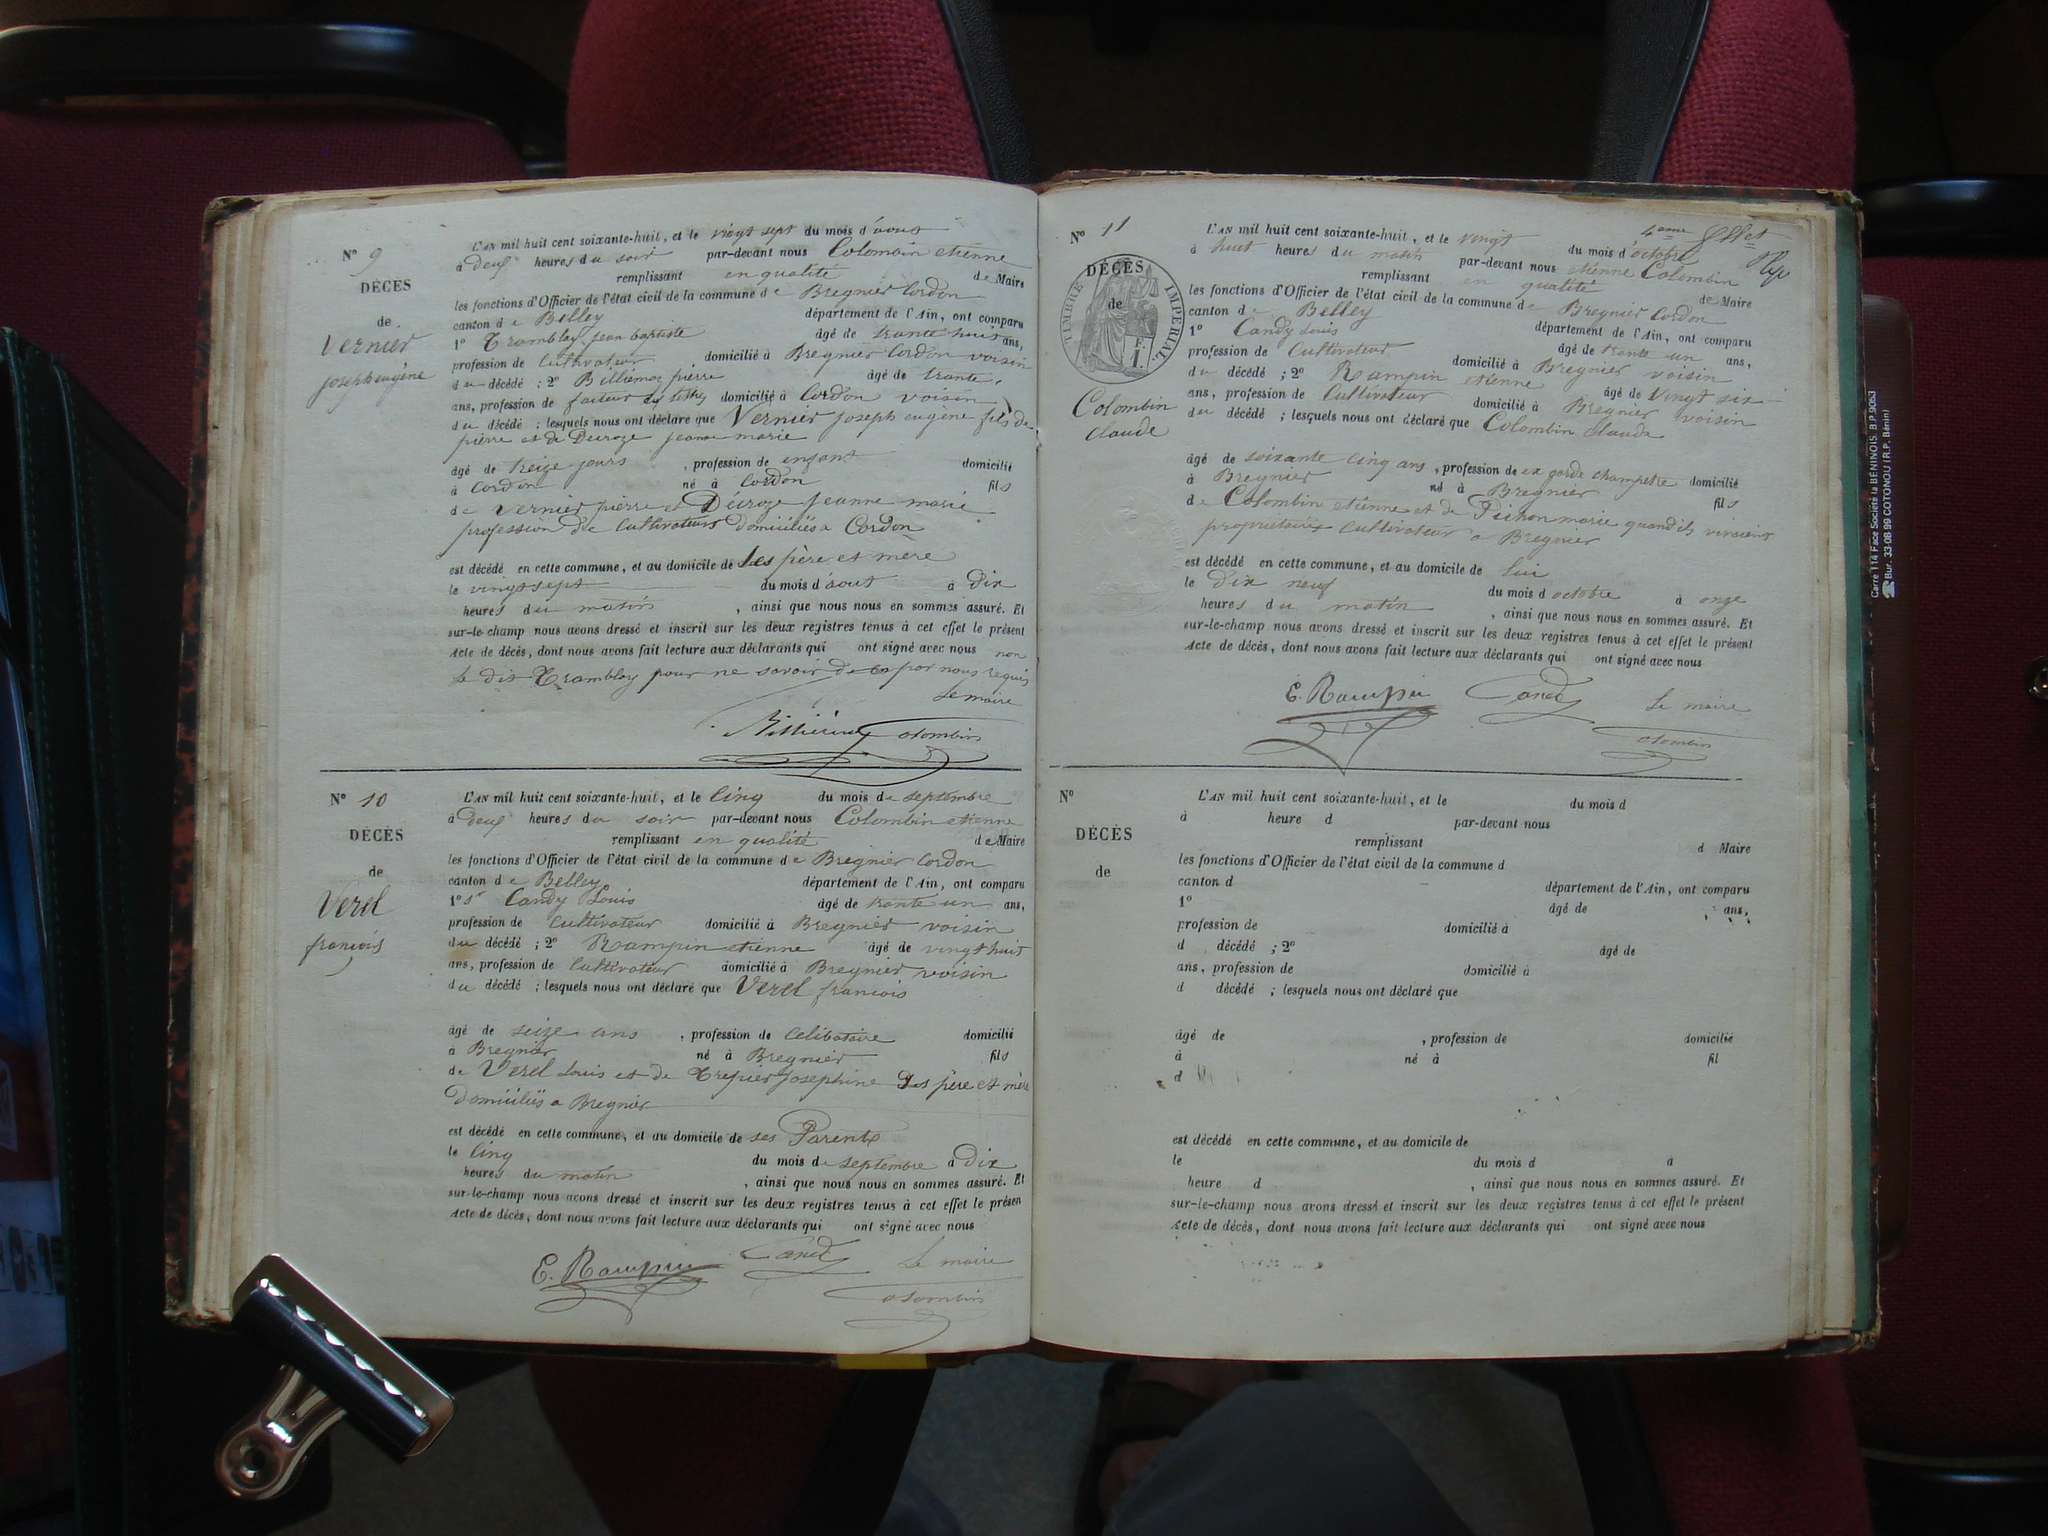 N° 9
DÉCÈS
de
Vernier
joseph eugène
L'AN mil huit cent soixante-huit, et le vingt sept du mois d'aout
à deux heures du soir par-devant nous Colombin etienne
remplissant en qualité de Maire
les fonctions d'Officier de l'état civil de la commune de Bregnier Cordon
canton de Belley département de l'Ain, ont comparu
1° Tramblay jean baptiste âgé de trante huit ans,
profession de Cultivateur domicilié à Bregnier Cordon voisin
du décédé ; 2° Billiémaz pierre âgé de trante
ans, profession de facteur domicilié à Cordon voisin
du décédé ; lesquels nous ont déclaré que Vernier joseph eugène fils de
pierre et de Décroze jeanne marie
âgé de treize jours , profession de enfant domicilié
à Cordon né à Cordon fils
de Vernier pierre et Décroze jeanne marie
profession de Cultivateurs domiciliés a Cordon
est décédé en cette commune, et au domicile de ses père et mère
le vingt sept du mois d'aout à dix
heures du matin , ainsi que nous nous en sommes assuré. Et
sur-le-champ nous avons dressé et inscrit sur les deux registres tenus à cet effet le présent
acte de décès, dont nous avons fait lecture aux déclarants qui ont signé avec nous non
le dit Tramblay pour ne savoir de ce par nous requis
Le maire
Billiémaz Colombin
N° 10
DÉCÈS
de
Verel
françois
L'AN mil huit cent soixante-huit, et le cinq du mois de septembre
à deux heures du soir par-devant nous Colombin etienne
remplissant en qualité de Maire
les fonctions d'Officier de l'état civil de la commune de Bregnier Cordon
canton de Belley département de l'Ain, ont comparu
1° sr Candy Louis âgé de trante un ans,
profession de Cultivateur domicilié à Bregnier voisin
du décédé ; 2° Rampin etienne âgé de vingt huit
ans, profession de Cultivateur domicilié à Bregnier voisin
du décédé ; lesquels nous ont déclaré que Verel francois
âgé de seize ans , profession de Celibataire domicilié
à Bregnier né à Bregnier fils
de Verel Louis et de Trepier Josephine Ses père et mère
Domiciliés a Bregnier
est décédé en cette commune, et au domicile de ses Parents
le cinq du mois de septembre à Dix
heures du matin , ainsi que nous nous en sommes assuré. Et
sur-le-champ nous avons dressé et inscrit sur les deux registres tenus à cet effet le présent
acte de décès, dont nous avons fait lecture aux déclarants qui ont signé avec nous
E. Rampin Candy Le maire
Colombin
N° 11
DÉCÈS
de
TIMBRE IMPÉRIAL
1 F.
Colombin
claude
4eme
L'AN mil huit cent soixante-huit, et le vingt du mois d'octobre
à huit heures du matin par-devant nous etiénne Colombin
remplissant en qualité de Maire
les fonctions d'Officier de l'état civil de la commune de Bregnier Cordon
canton de Belley département de l'Ain, ont comparu
1° Candy Louis âgé de trante un ans,
profession de Cultivateur domicilié à Bregnier voisin
du décédé ; 2° Rampin etienne âgé de Vingt six
ans, profession de Cultivateur domicilié à Bregnier voisin
du décédé ; lesquels nous ont déclaré que Colombin claude
âgé de soixante cinq ans , profession de ex garde champetre domicilié
à Bregnier né à Bregnier fils
de Colombin etiénne et de Pichon marie quand ils vivaient
propriétaires Cultivateur a Bregnier
est décédé en cette commune, et au domicile de lui
le dix neuf du mois d octobre à onze
heures du matin , ainsi que nous nous en sommes assuré. Et
sur-le-champ nous avons dressé et inscrit sur les deux registres tenus à cet effet le présent
acte de décès, dont nous avons fait lecture aux déclarants qui ont signé avec nous
E. Rampin Candy Le maire
Colombin
N°
DÉCÈS
de
L'AN mil huit cent soixante-huit, et le du mois d
à heure d par-devant nous
remplissant d Maire
les fonctions d'Officier de l'état civil de la commune d
canton d département de l'Ain, ont comparu
1° âgé de , ans,
profession de domicilié à
d décédé ; 2° âgé de
ans, profession de domicilié à
d décédé ; lesquels nous ont déclaré que
âgé de , profession de domicilié
à né à fil
d
est décédé en cette commune, et au domicile de
le du mois d à
heure d , ainsi que nous nous en sommes assuré. Et
sur-le-champ nous avons dressé et inscrit sur les deux registres tenus à cet effet le présent
acte de décès, dont nous avons fait lecture aux déclarants qui ont signé avec nous
Carré 114 Face Société la BENINOIS. B.P. 9063
Bur. 33-08-99 COTONOU (R.P. Bénin)